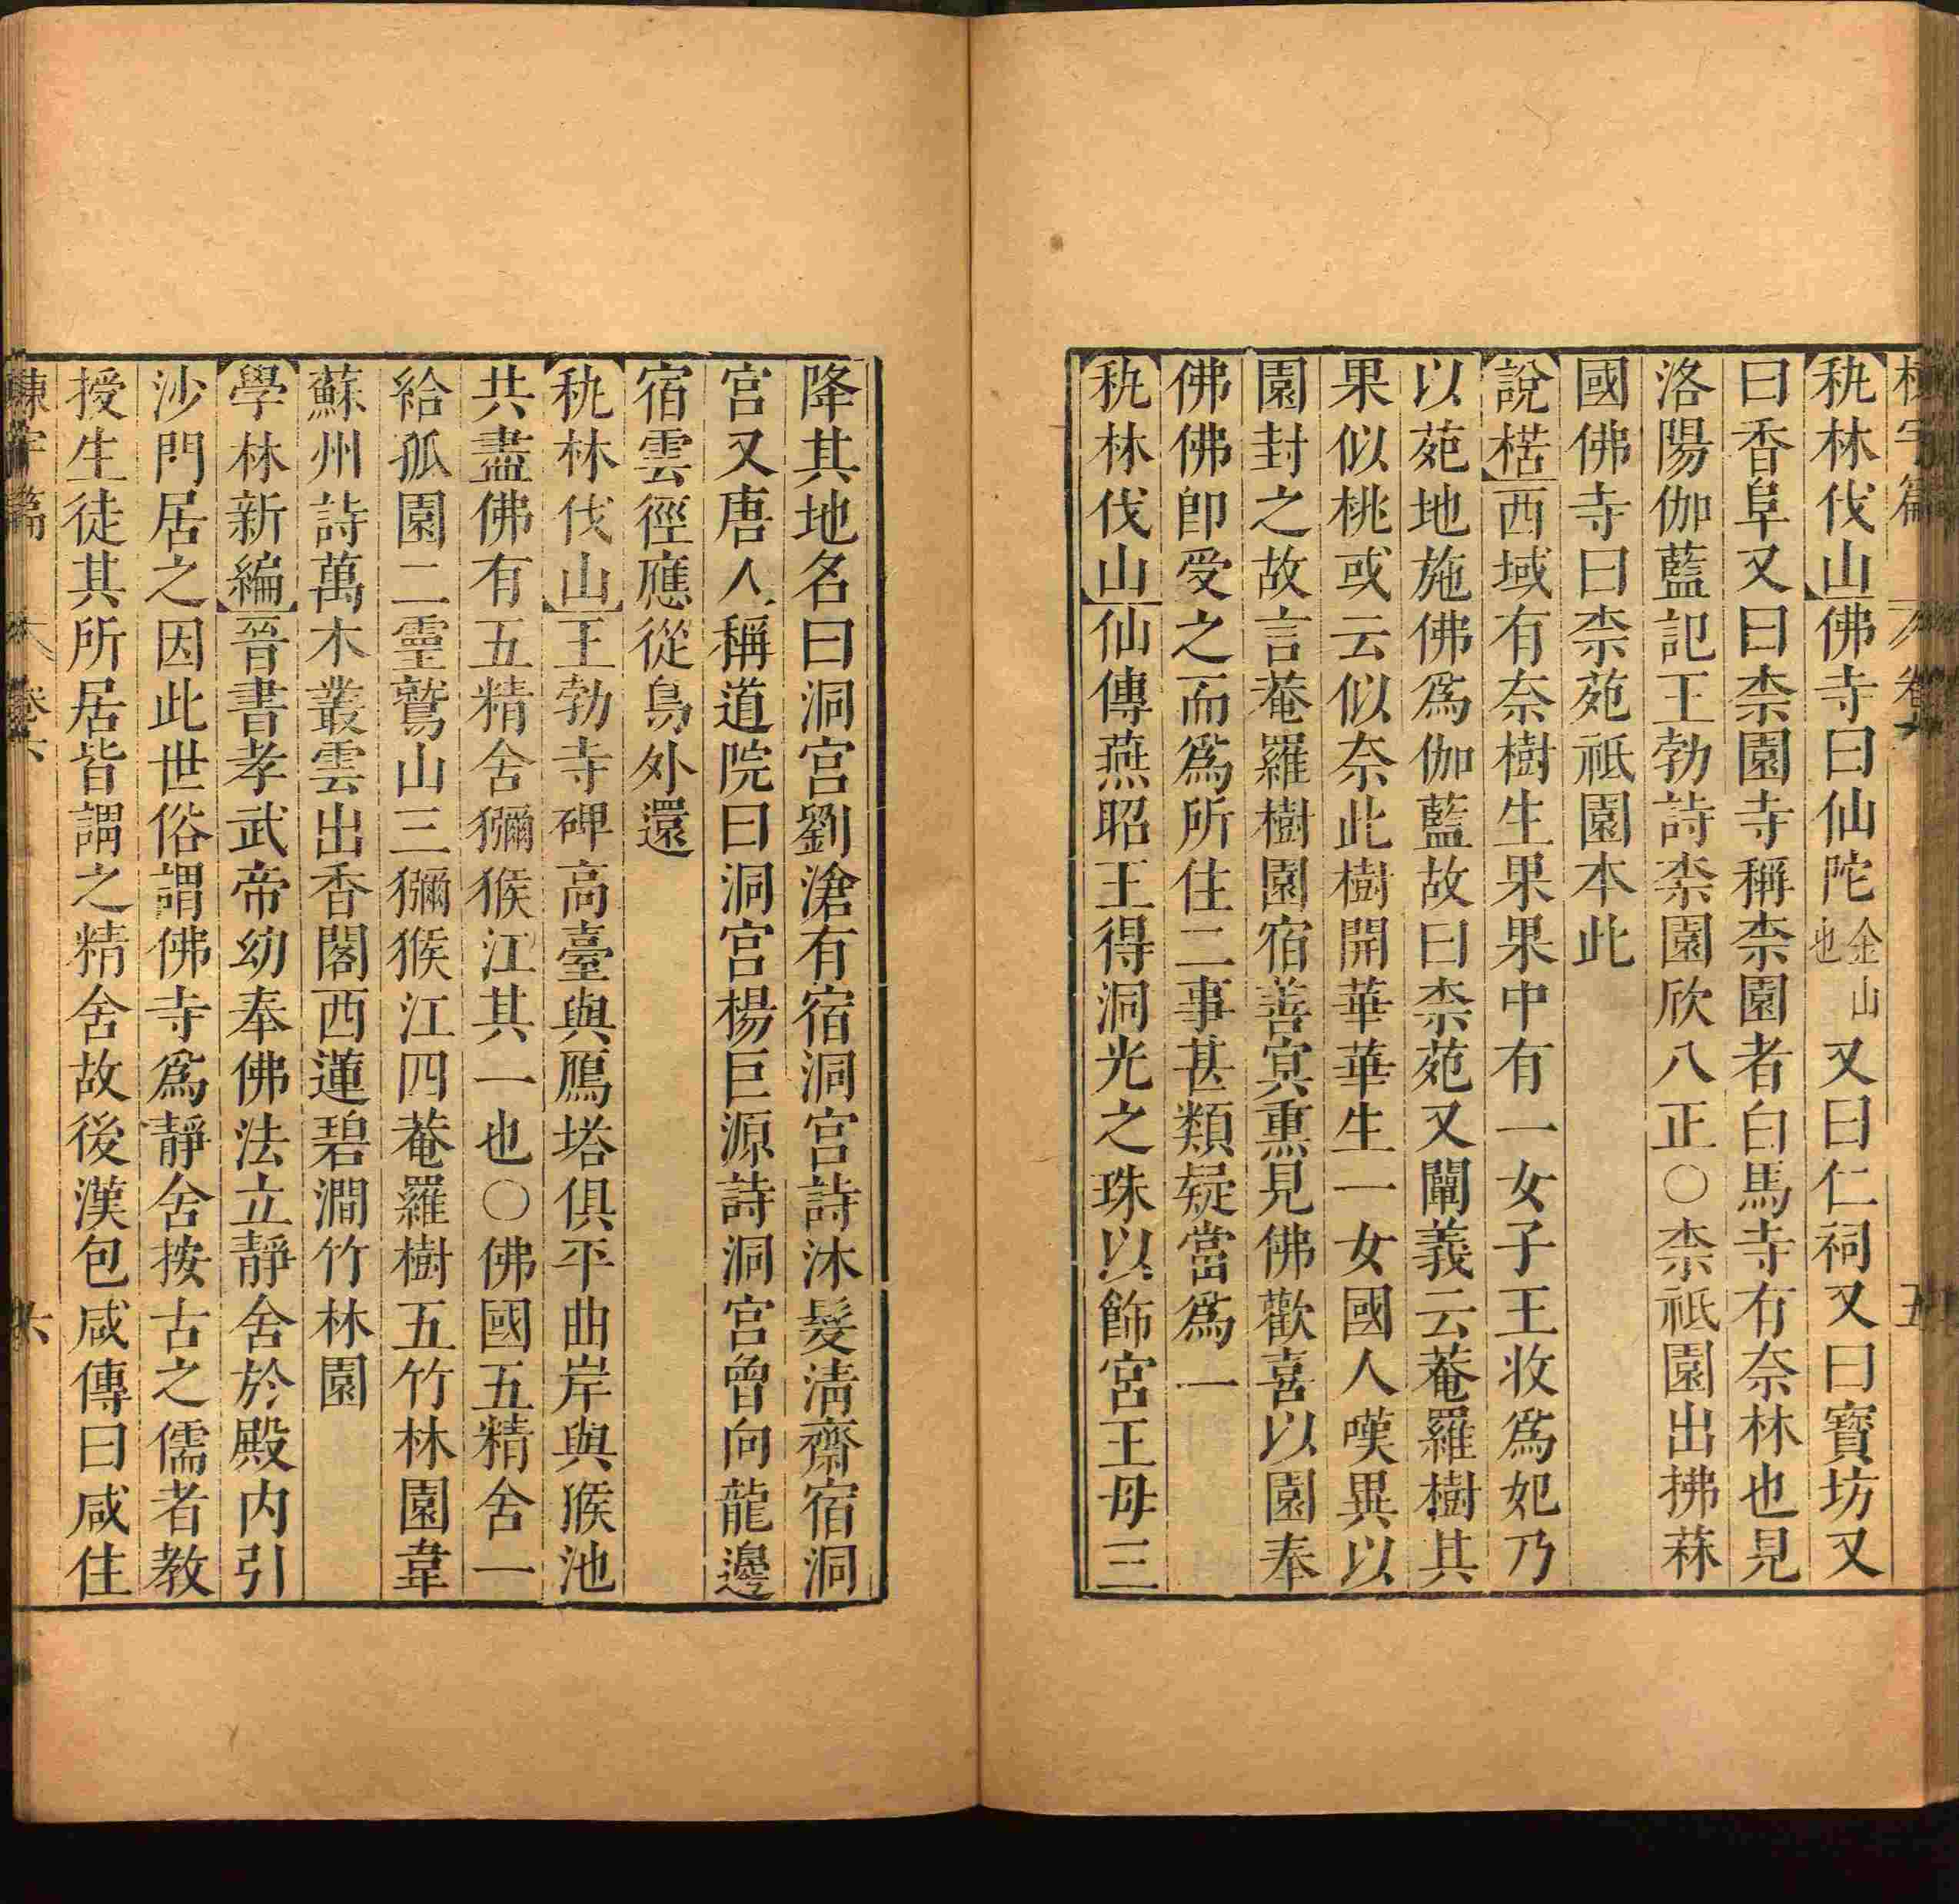 秇林伐山佛寺曰仙陀金山也又曰仁祠又曰寶坊又
曰香阜又曰柰園寺稱柰園者白馬寺有奈林也見
洛陽伽藍記王勃詩柰園欣八正○柰祗園出拂菻
國佛寺曰柰苑祗園本此
說楛西域有奈樹生果果中有一女子王收為妃乃
以苑地施佛爲伽藍故曰柰苑又闡義云菴羅樹其
果似桃或云似奈此樹開華華生一女國人嘆異以
園封之故言菴羅樹園宿善冥熏見佛歡喜以園奉
佛佛即受之而爲所住二事甚類疑當爲一
秇林伐山仙傳燕昭王得洞光之珠以飾宮王母三
降其地名曰洞宮劉滄有宿洞宮詩沐髮清齋宿洞
宮又唐人稱道院曰洞宮楊巨源詩洞宮曾向龍邊
宿雲徑應從鳥外還
秇林伐山王勃寺碑高臺與鴈塔俱平曲岸與猴池
共盡佛有五精舍獼猴江其一也○佛國五精舍一
給孤園二靈鷲山三獼猴江四菴羅樹五竹林園韋
蘇州詩萬木叢雲出香閣西蓮碧澗竹林園
學林新編晉書孝武帝幼奉佛法立靜舍於殿內引
沙門居之因此世俗謂佛寺爲靜舍按古之儒者教
授生徒其所居皆謂之精舍故後漢包咸傳曰咸住
卷六
六